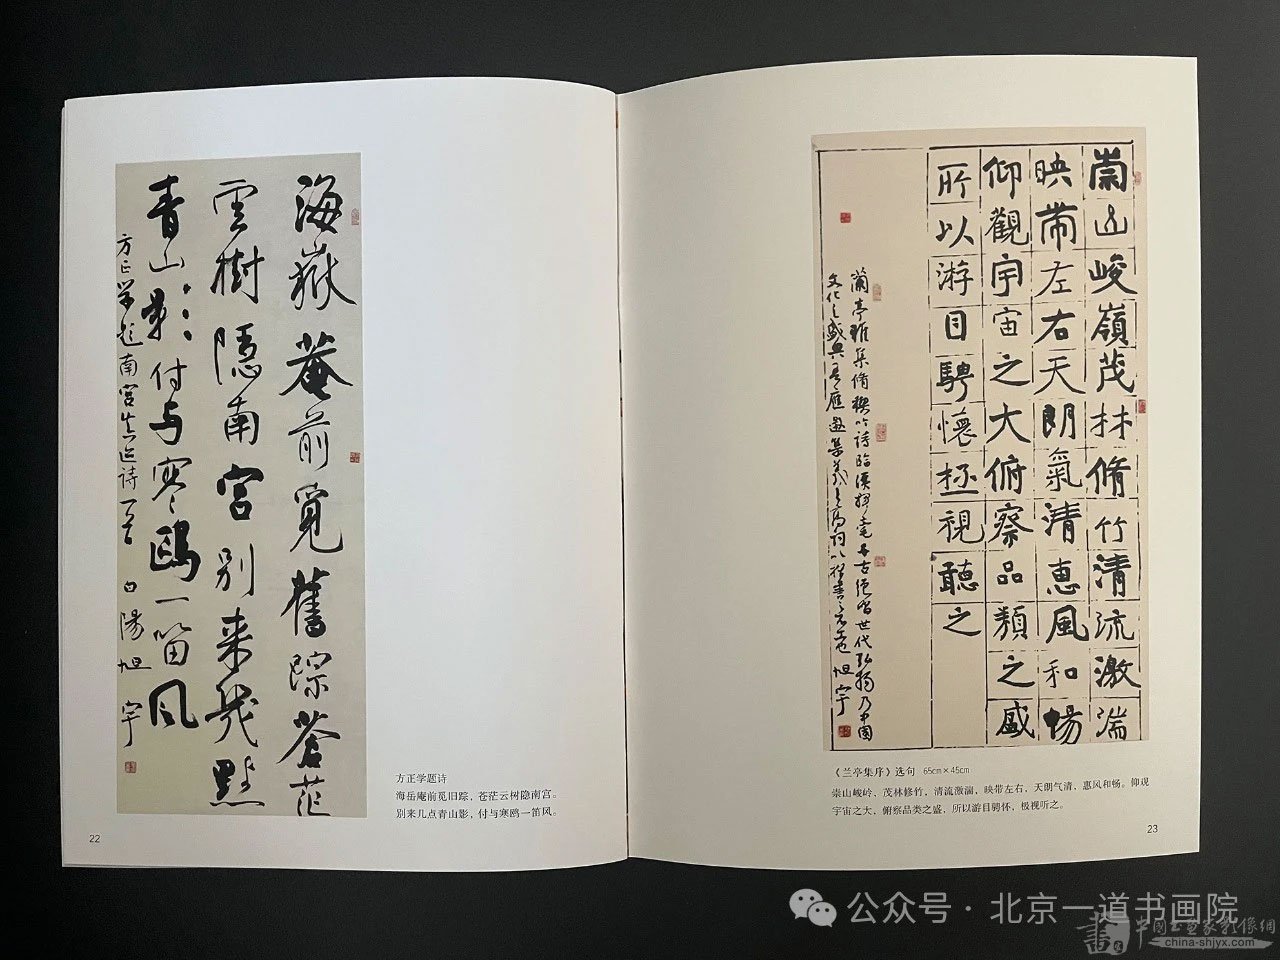 海嶽菴前覓舊踪蒼茫
雲樹隱南宮别来幾點
青山影付与寒鷗一笛風
方正学题南宫真迹诗一首 白陽旭宇
方正学题诗
海岳庵前觅旧踪，苍茫云树隐南宫。
别来几点青山影，付与寒鸥一笛风。
22
崇山峻嶺茂林脩竹清流激湍
映帶左右天朗氣清惠風和暢
仰觀宇宙之大俯察品類之盛
所以游目騁懷極視聽之
蘭亭雅集脩禊吟詩臨溪揮毫絕唱世代弘揚乃中國
文化之盛典應邀集旭宇
《兰亭集序》选句 65cm×45cm
崇山峻岭、茂林修竹，清流激湍，映带左右，天朗气清，惠风和畅。仰观
宇宙之大，俯察品类之盛，所以游目骋怀，极视听之。
23
公众号·北京一道书画院
中國书画家影像網
china-shjyx.com